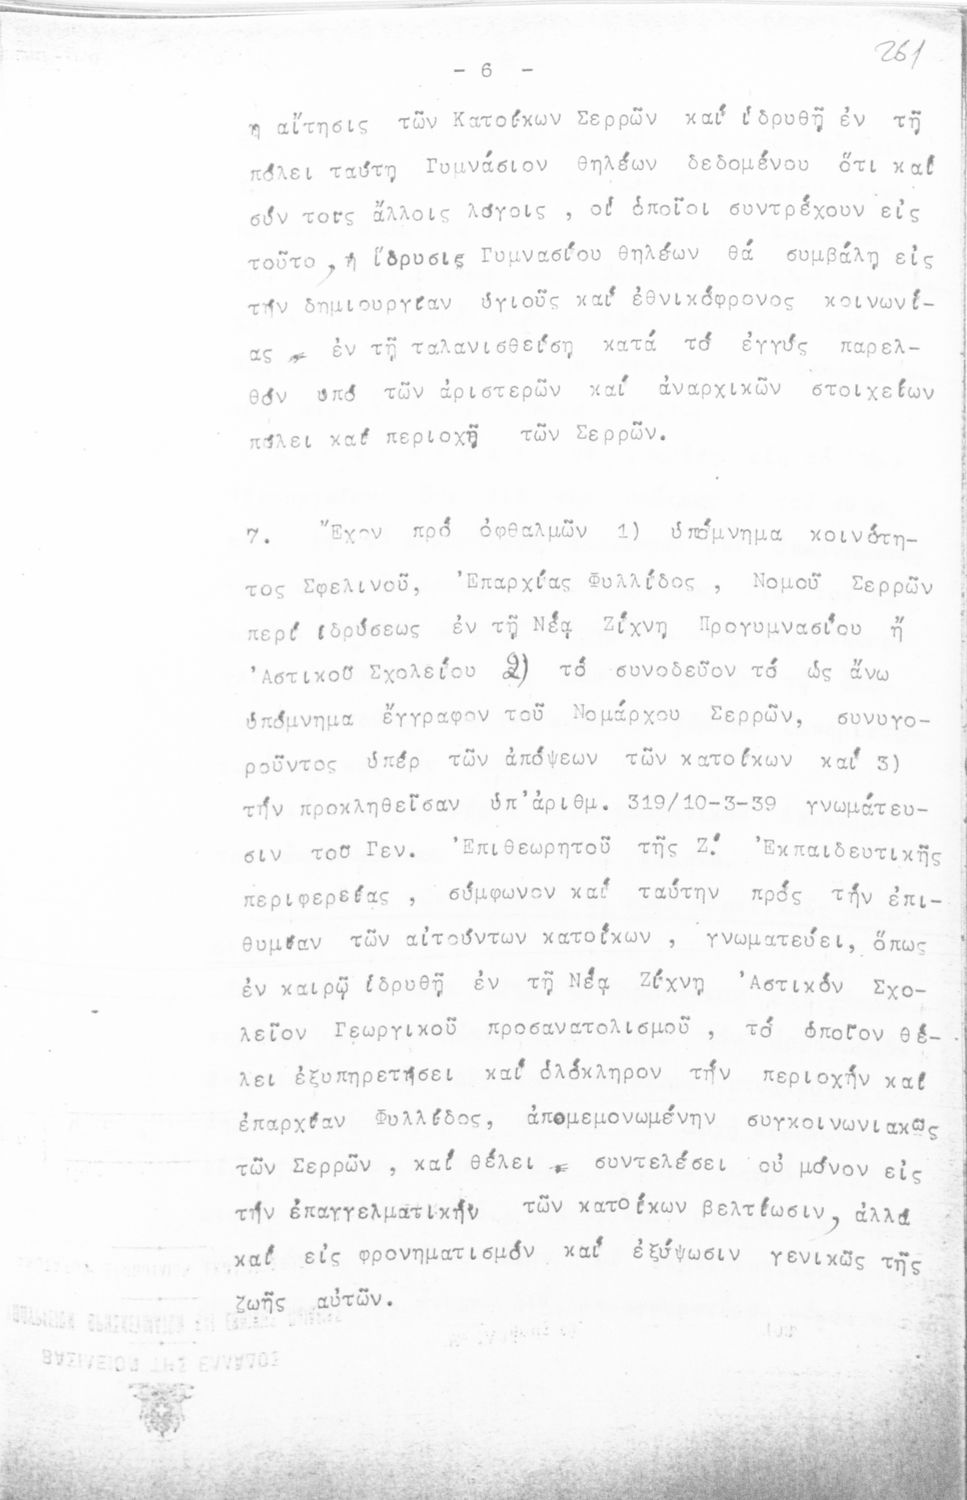 261
- 6 -
η αἴτησις τῶν Κατοίκων Σερρῶν καί ἱδρυθῇ ἐν τῇ
πόλει ταύτῃ Γυμνάσιον θηλέων δεδομένου ὅτι καί
σύν τοῖς ἄλλοις λόγοις , οἱ ὁποῖοι συντρέχουν εἰς
τοῦτο, ἡ ἵδρυσις Γυμνασίου θηλέων θά συμβάλῃ εἰς
τήν δημιουργίαν ὑγιοῦς καί ἐθνικόφρονος κοινωνί-
ας ἐν τῇ ταλανισθείσῃ κατά τό ἐγγύς παρελ-
θόν ὑπό τῶν ἀριστερῶν καί ἀναρχικῶν στοιχείων
πόλει καί περιοχῇ τῶν Σερρῶν.
7. Ἔχον πρό ὀφθαλμῶν 1) ὑπόμνημα κοινότη-
τος Σφελινοῦ, Ἐπαρχίας Φυλλίδος , Νομοῦ Σερρῶν
περί ἱδρύσεως ἐν τῇ Νέᾳ Ζίχνῃ Προγυμνασίου ἤ
Ἀστικοῦ Σχολείου 2) τό συνοδεῦον τό ὡς ἄνω
ὑπόμνημα ἔγγραφον τοῦ Νομάρχου Σερρῶν, συνυγο-
ροῦντος ὑπέρ τῶν ἀπόψεων τῶν κατοίκων καί 3)
τήν προκληθεῖσαν ὑπ'ἀριθμ. 319/10-3-39 γνωμάτευ-
σιν τοῦ Γεν. Ἐπιθεωρητοῦ τῆς Ζ! Ἐκπαιδευτικῆς
περιφερείας , σύμφωνον καί ταύτην πρός τήν ἐπι-
θυμίαν τῶν αἰτούντων κατοίκων , γνωματεύει, ὅπως
ἐν καιρῷ ἱδρυθῇ ἐν τῇ Νέᾳ Ζίχνῃ Ἀστικόν Σχο-
λεῖον Γεωργικοῦ προσανατολισμοῦ , τό ὁποῖον θέ-
λει ἐξυπηρετήσει καί ὁλόκληρον τήν περιοχήν καί
ἐπαρχίαν Φυλλίδος, ἀπομεμονωμένην συγκοινωνιακῶς
τῶν Σερρῶν , καί θέλει συντελέσει οὐ μόνον εἰς
τήν ἐπαγγελματικήν τῶν κατοίκων βελτίωσιν, ἀλλά
καί εἰς φρονηματισμόν καί ἐξύψωσιν γενικῶς τῆς
ζωῆς αὐτῶν.